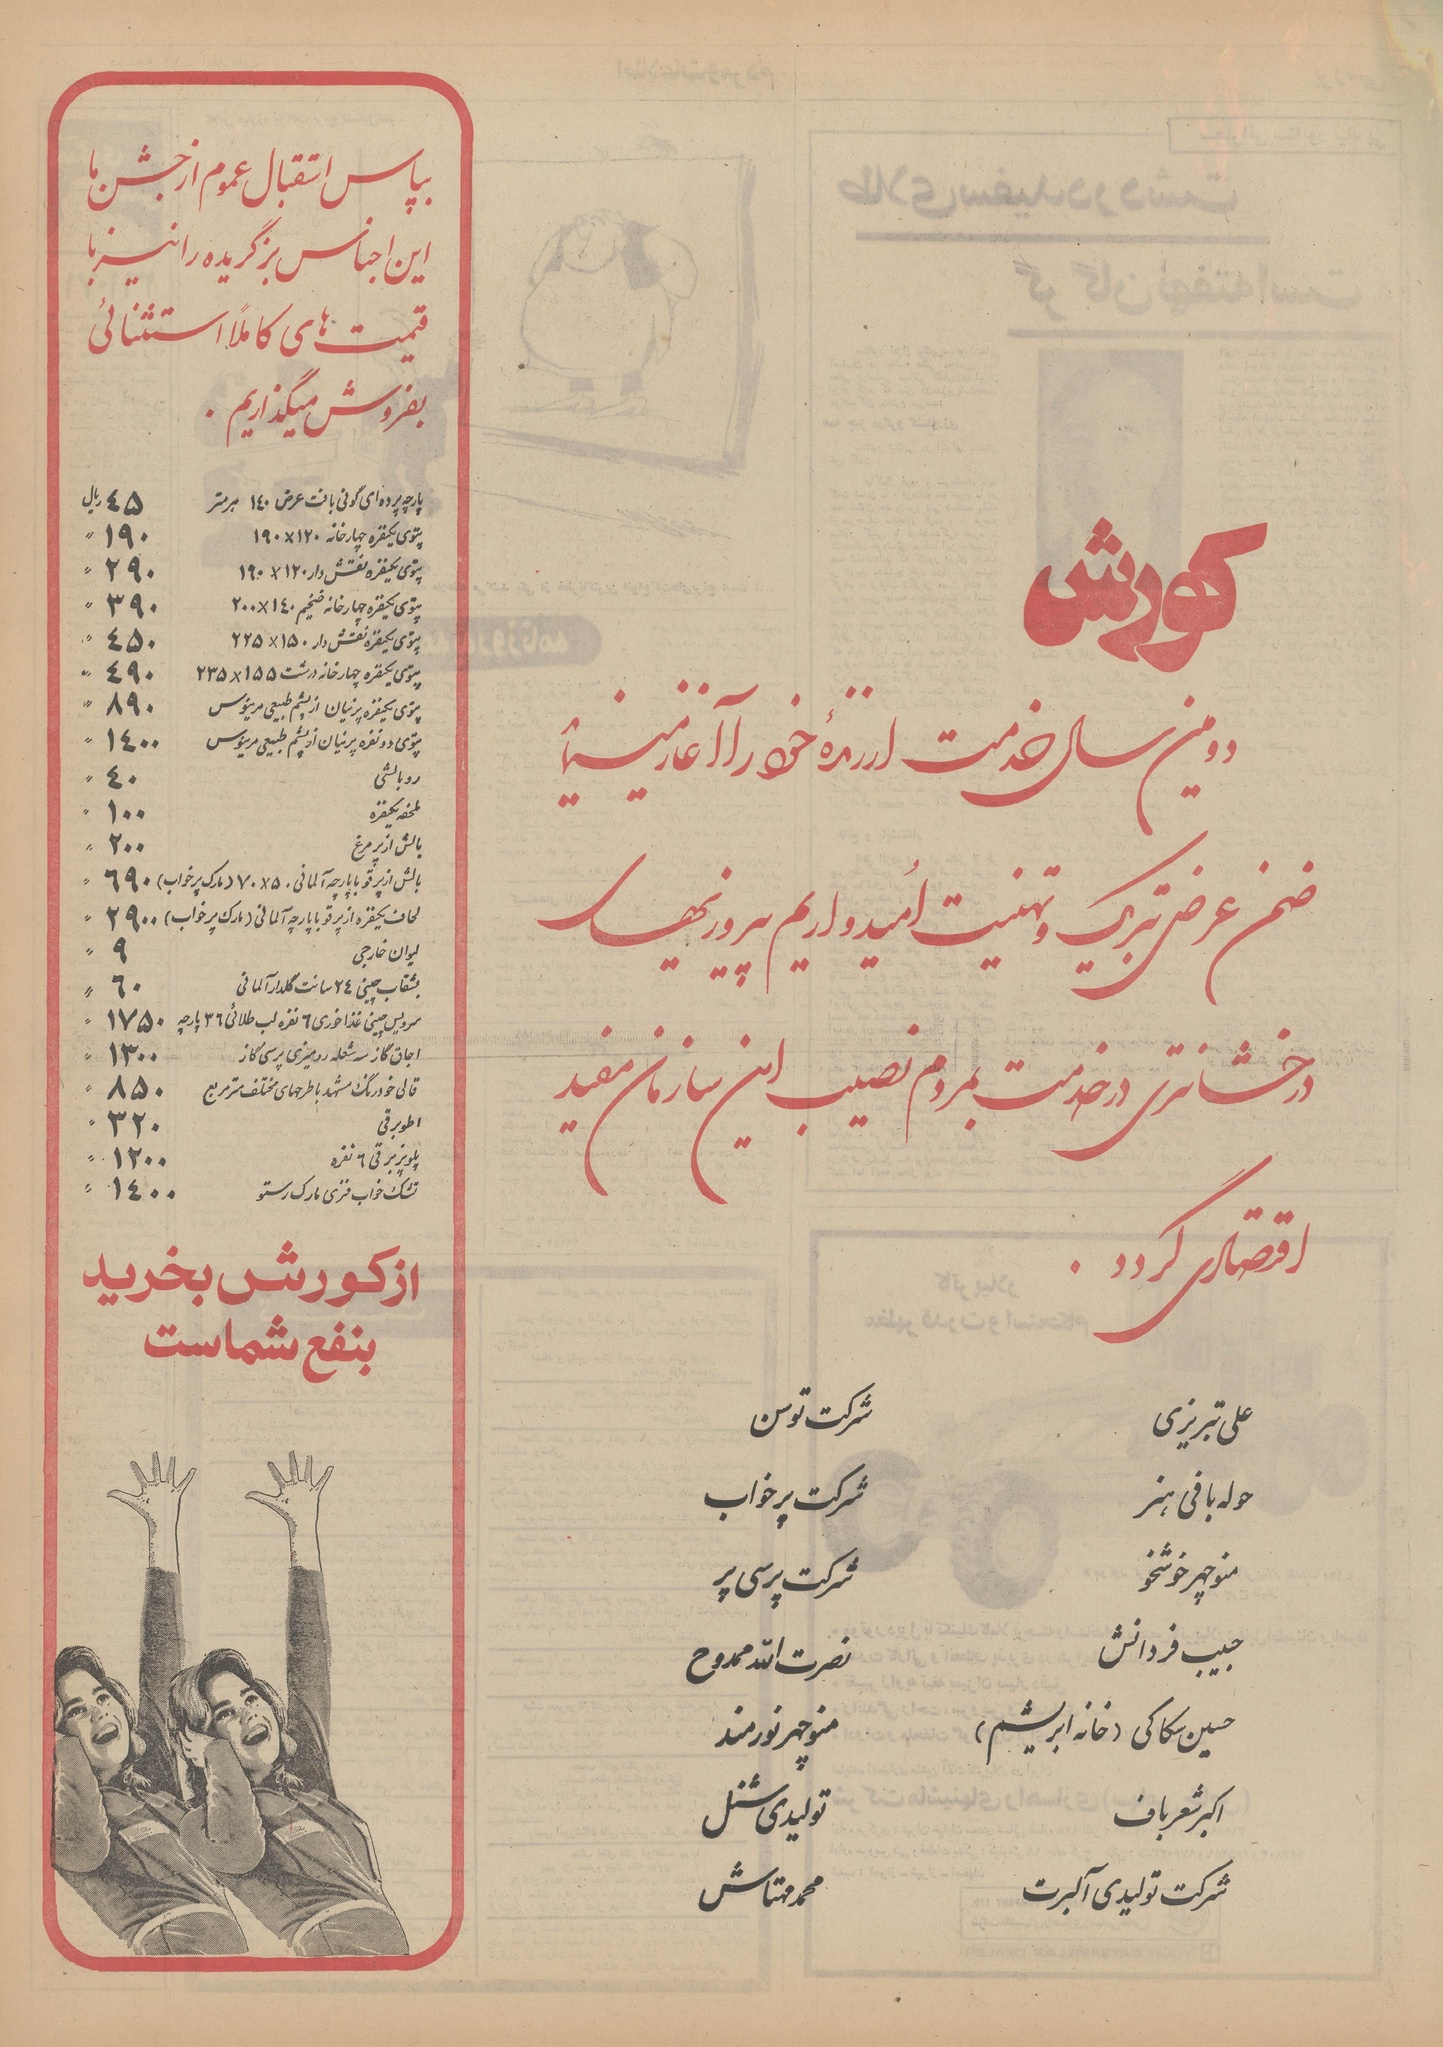 کورش
دومین سال خدمت ارزندهٔ خود را آغاز مینماید
ضمن عرض تبریک و تهنیت امیدواریم پیروزیهای
درخشانتری در خدمت بمردم نصیب این سازمان مفید
اقتصادی گردد .
علی تبریزی
حوله بافی هنر
منوچهر خوشخو
حبیب فردانش
حسین سکاکی (خانه ابریشم)
اکبر شعرباف
شرکت تولیدی آلبرت
شرکت توسن
شرکت پرخواب
شرکت پرسی پر
نصرت الله ممدوح
منوچهر نورمند
تولیدی شنل
محمد مهتاش
بپاس استقبال عموم از جشن ما
این اجناس برگزیده را نیز با
قیمت های کاملاً استثنائی
بفروش میگذاریم .
پارچه پرده ای گونی بافت عرض ۱٤۰ هر متر ٤۵ ریال
پتوی یکنفره چهارخانه ۱۲۰×۱۹۰ ۱۹۰ "
پتوی یکنفره نقش دار ۱۲۰×۱۹۰ ۲۹۰ "
پتوی یکنفره چهارخانه ضخیم ۱٤۰×۲۰۰ ۳۹۰ "
پتوی یکنفره نقش دار ۱۵۰×۲۲۵ ٤۵۰ "
پتوی یکنفره چهارخانه درشت ۱۵۵×۲۳۵ ٤۹۰ "
پتوی یکنفره پرنیان از پشم طبیعی مرینوس ۸۹۰ "
پتوی دونفره پرنیان از پشم طبیعی مرینوس ۱٤۰۰ "
روبالشی ٤۰ "
ملحفه یکنفره ۱۰۰ "
بالش از پر مرغ ۲۰۰ "
بالش از پر قو با پارچه آلمانی ۵۰×۷۰ (مارک پرخواب) ٦۹۰ "
لحاف یکنفره از پر قو با پارچه آلمانی (مارک پرخواب) ۲۹۰۰ "
لیوان خارجی ۹ "
بشقاب چینی ۲٤ سانت گلدار آلمانی ٦۰ "
سرویس چینی غذاخوری ٦ نفره لب طلائی ۳٦ پارچه ۱۷۵۰ "
اجاق گاز سه شعله رومیزی پرسی گاز ۱۳۰۰ "
قالی خودرنگ مشهد با طرحهای مختلف متر مربع ۸۵۰ "
اطو برقی ۳۲۰ "
پلوپز برقی ٦ نفره ۱۲۰۰ "
تشک خواب فنری مارک رستو ۱٤۰۰ "
از کورش بخرید
بنفع شماست